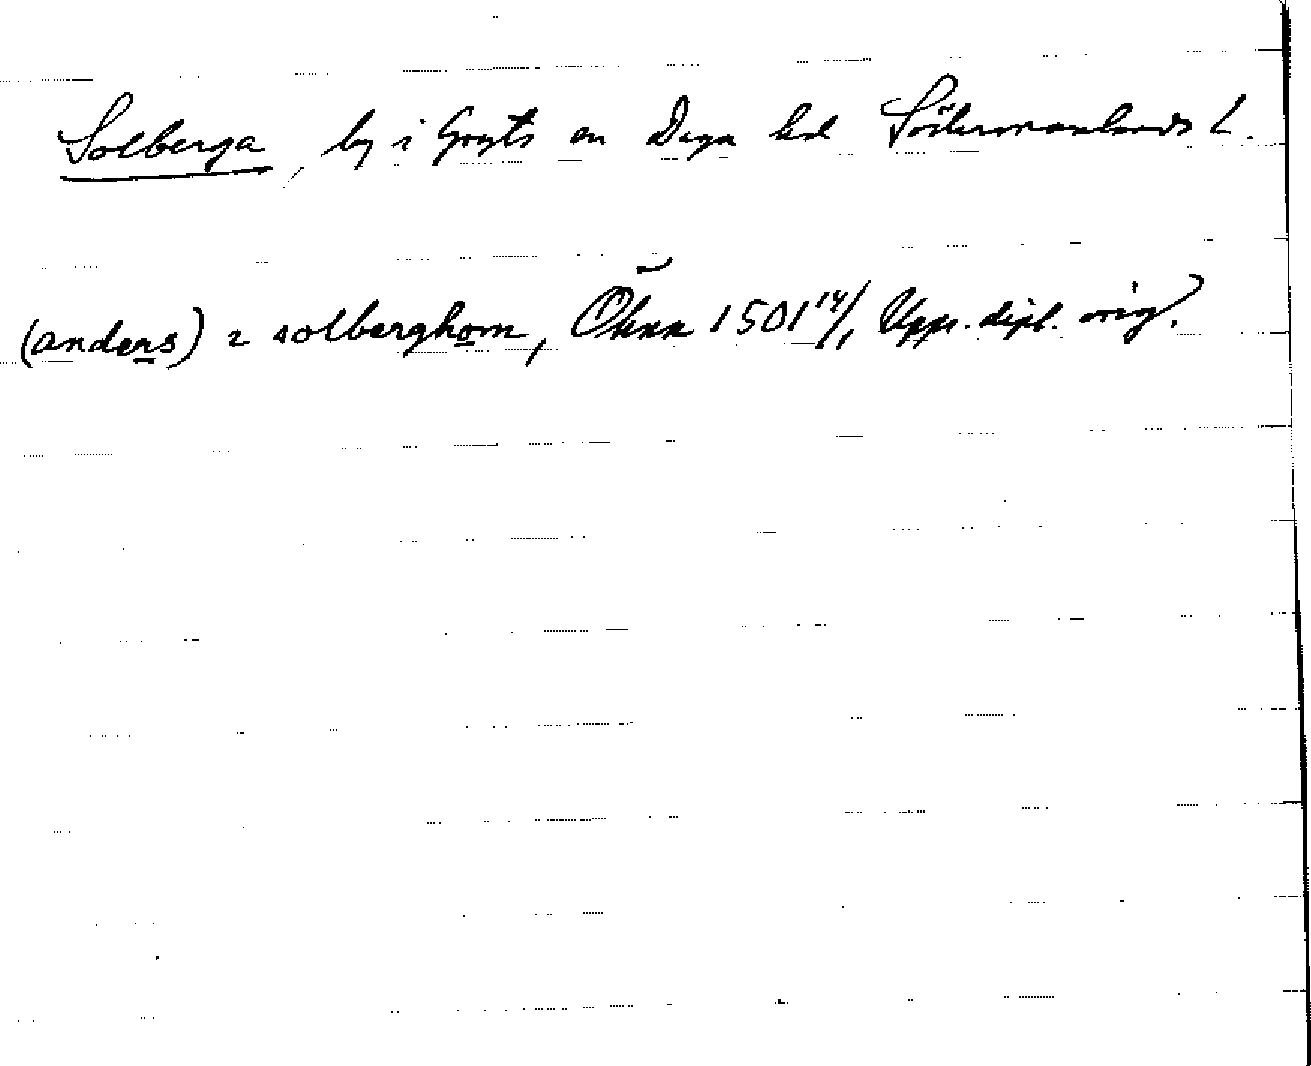 Solberga, by i Gryts sn Daga hd Södermanlands l.
(anders) i solberghom, Ökna 1501 14/, Upps. dipl. orig.